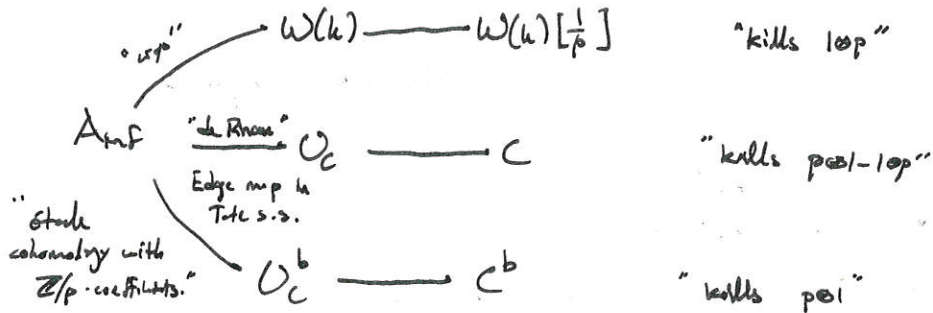 W(k) W(k)[1/p] "kills 1⊗p"
A_inf "de Rham" O_C C "kills p⊗1-1⊗p"
Edge map in
Tate s.s.
"étale
cohomology with
Z/p-coefficients."
O_C^b C^b "kills p⊗1"